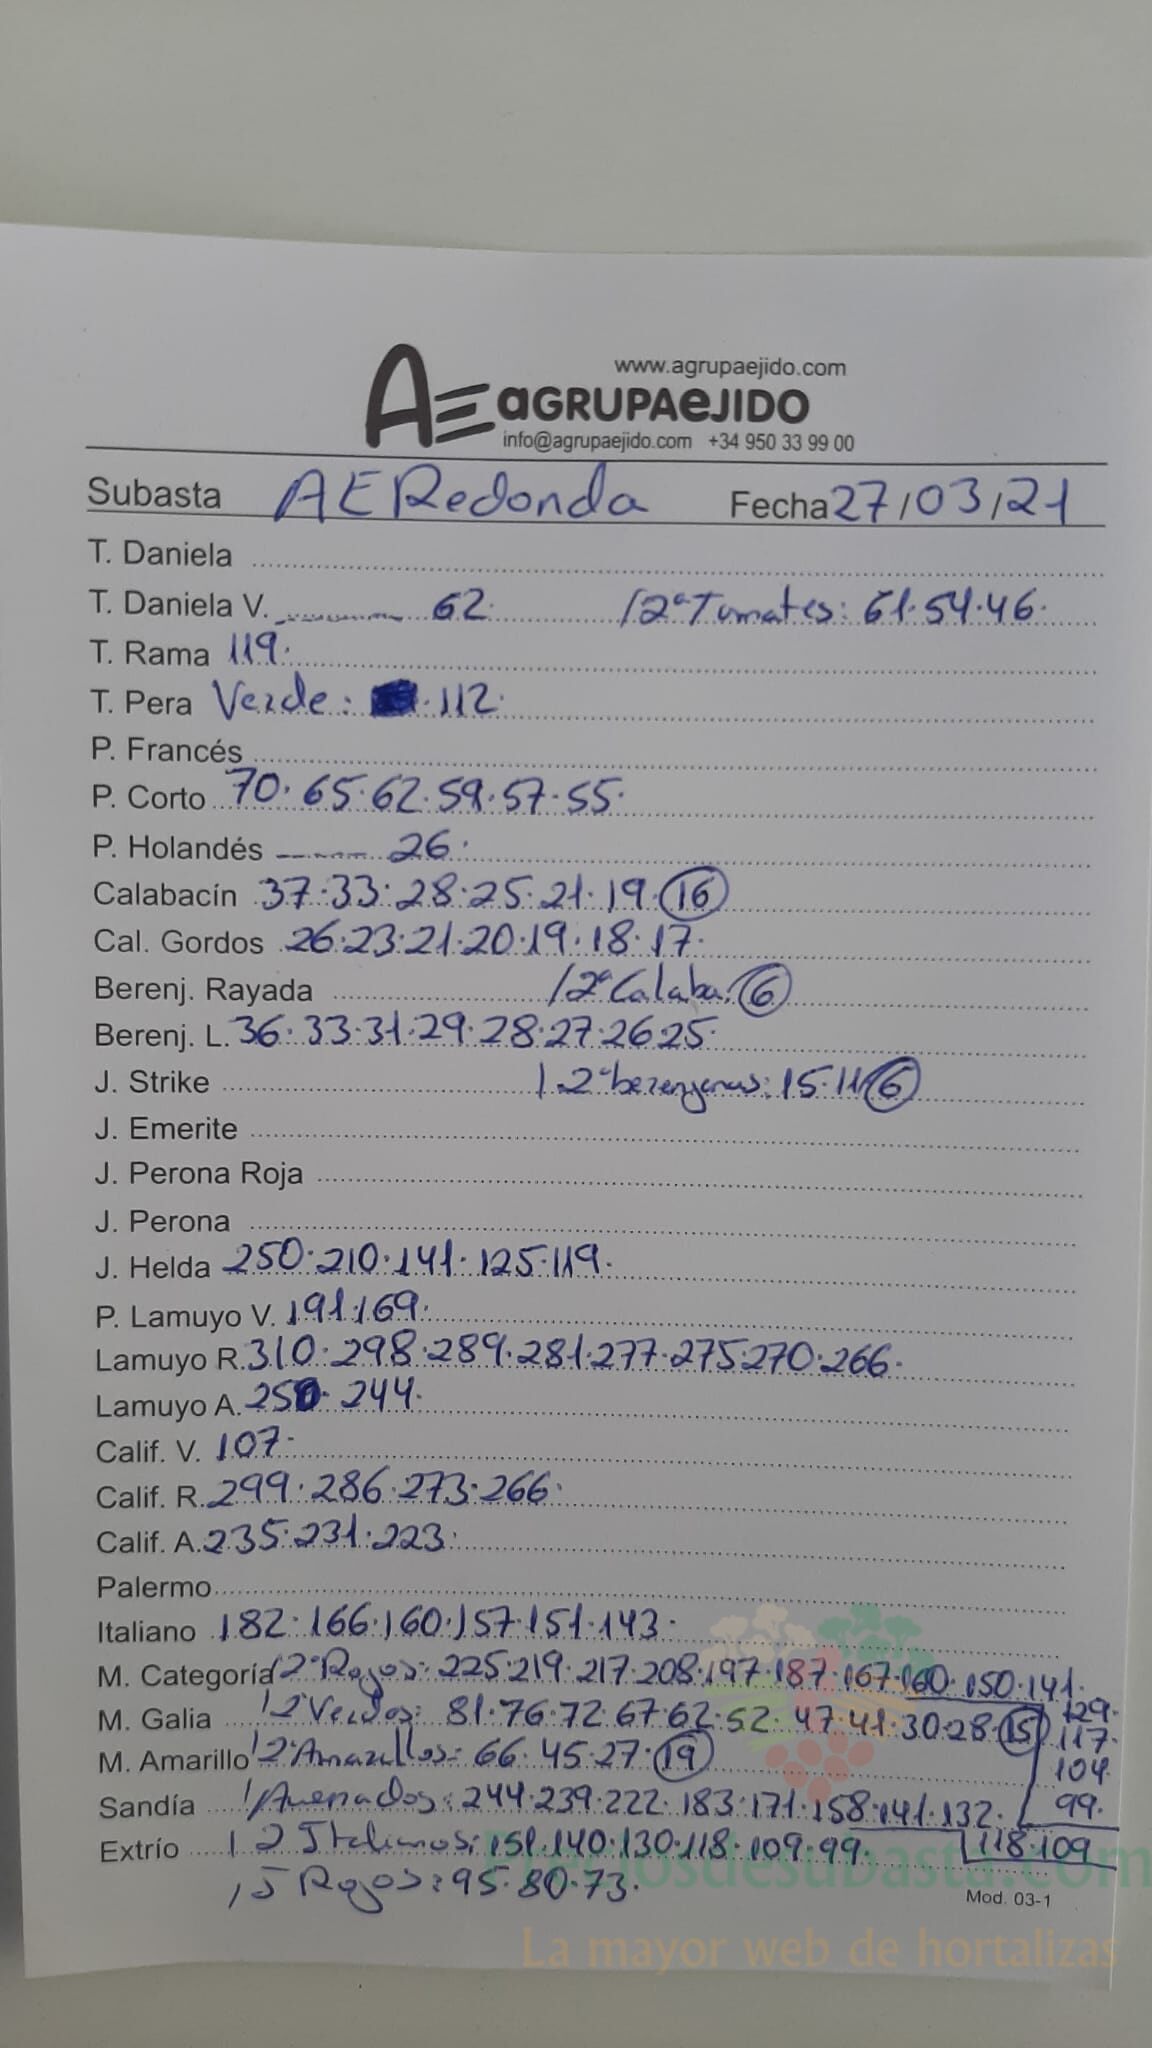 www.agrupaejido.com
AE aGRUPAeJIDO
info@agrupaejido.com +34 950 33 99 00
Subasta AE Redonda Fecha 27/03/21
T. Daniela
T. Daniela V. 62. / 2ª Tomates: 61.54.46.
T. Rama 119.
T. Pera Verde: .112.
P. Francés
P. Corto 70.65.62.59.57.55.
P. Holandés 26.
Calabacín 37.33.28.25.21.19.16
Cal. Gordos 26.23.21.20.19.18.17.
Berenj. Rayada / 2ª Calaba. 6
Berenj. L. 36.33.31.29.28.27.26.25.
J. Strike / 2ª berenjenas: 15.11.6
J. Emerite
J. Perona Roja
J. Perona
J. Helda 250.210.141.125.119.
P. Lamuyo V. 191.169.
Lamuyo R. 310.298.289.281.277.275.270.266.
Lamuyo A. 250.244.
Calif. V. 107.
Calif. R. 299.286.273.266.
Calif. A. 235.231.223.
Palermo
Italiano 182.166.160.157.151.143.
M. Categoría / 2ª Rojos: 225.219.217.208.197.187.167.160.150.141.
129.
M. Galia / 2 Verdes: 81.76.72.67.62.52.47.41.30.28.15 117.
M. Amarillo / 2ª Amarillos: 66.45.27.19 104.
Sandía / Avenados: 244.239.222.183.171.158.141.132. 99.
Extrío / 2 Italianos: 151.140.130.118.109.99. 118.109
/ J Rojos: 95.80.73.
Preciosdesubasta.com
Mod. 03-1
La mayor web de hortalizas